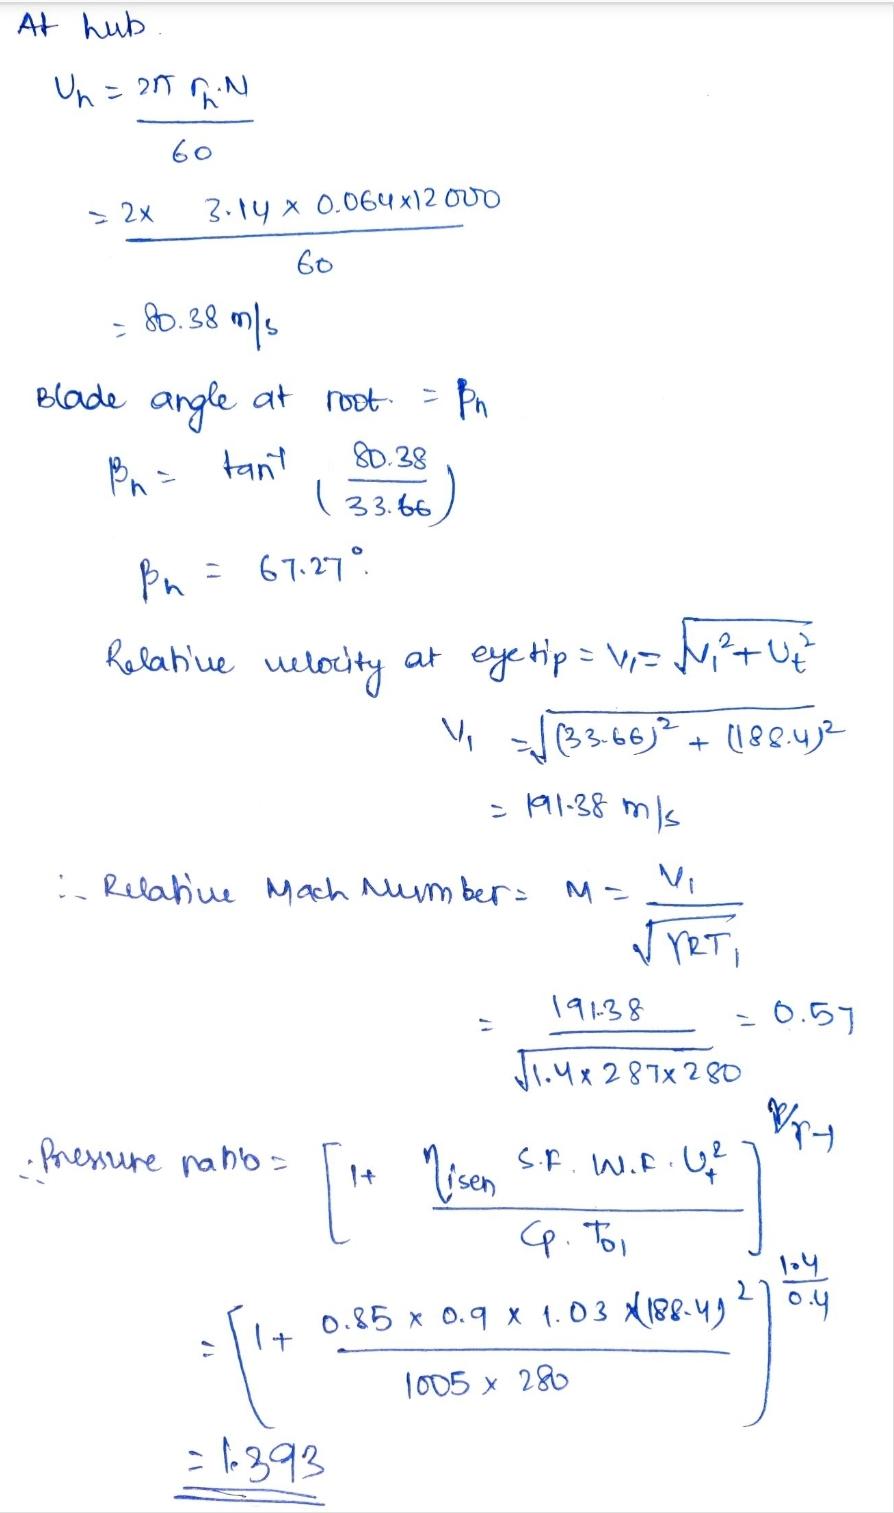 At hub.
Uh = 2π rh.N / 60
= 2x 3.14 x 0.064x12000 / 60
= 80.38 m/s
Blade angle at root. = βh
βh = tan⁻¹ (80.38 / 33.66)
βh = 67.27°.
Relative velocity at eye tip = V₁ = √V₁² + Ut²
V₁ = √(33.66)² + (188.4)²
= 191.38 m/s
∴ Relative Mach Number = M = V₁ / √γRT₁
= 191.38 / √1.4 x 287x 280 = 0.57
∴ Pressure ratio = [1+ ηisen S.F. W.F. Ut² / Cp. T01]^γ/γ-1
= [1+ 0.85 x 0.9 x 1.03 x(188.4)² / 1005 x 280]^1.4/0.4
= 1.393